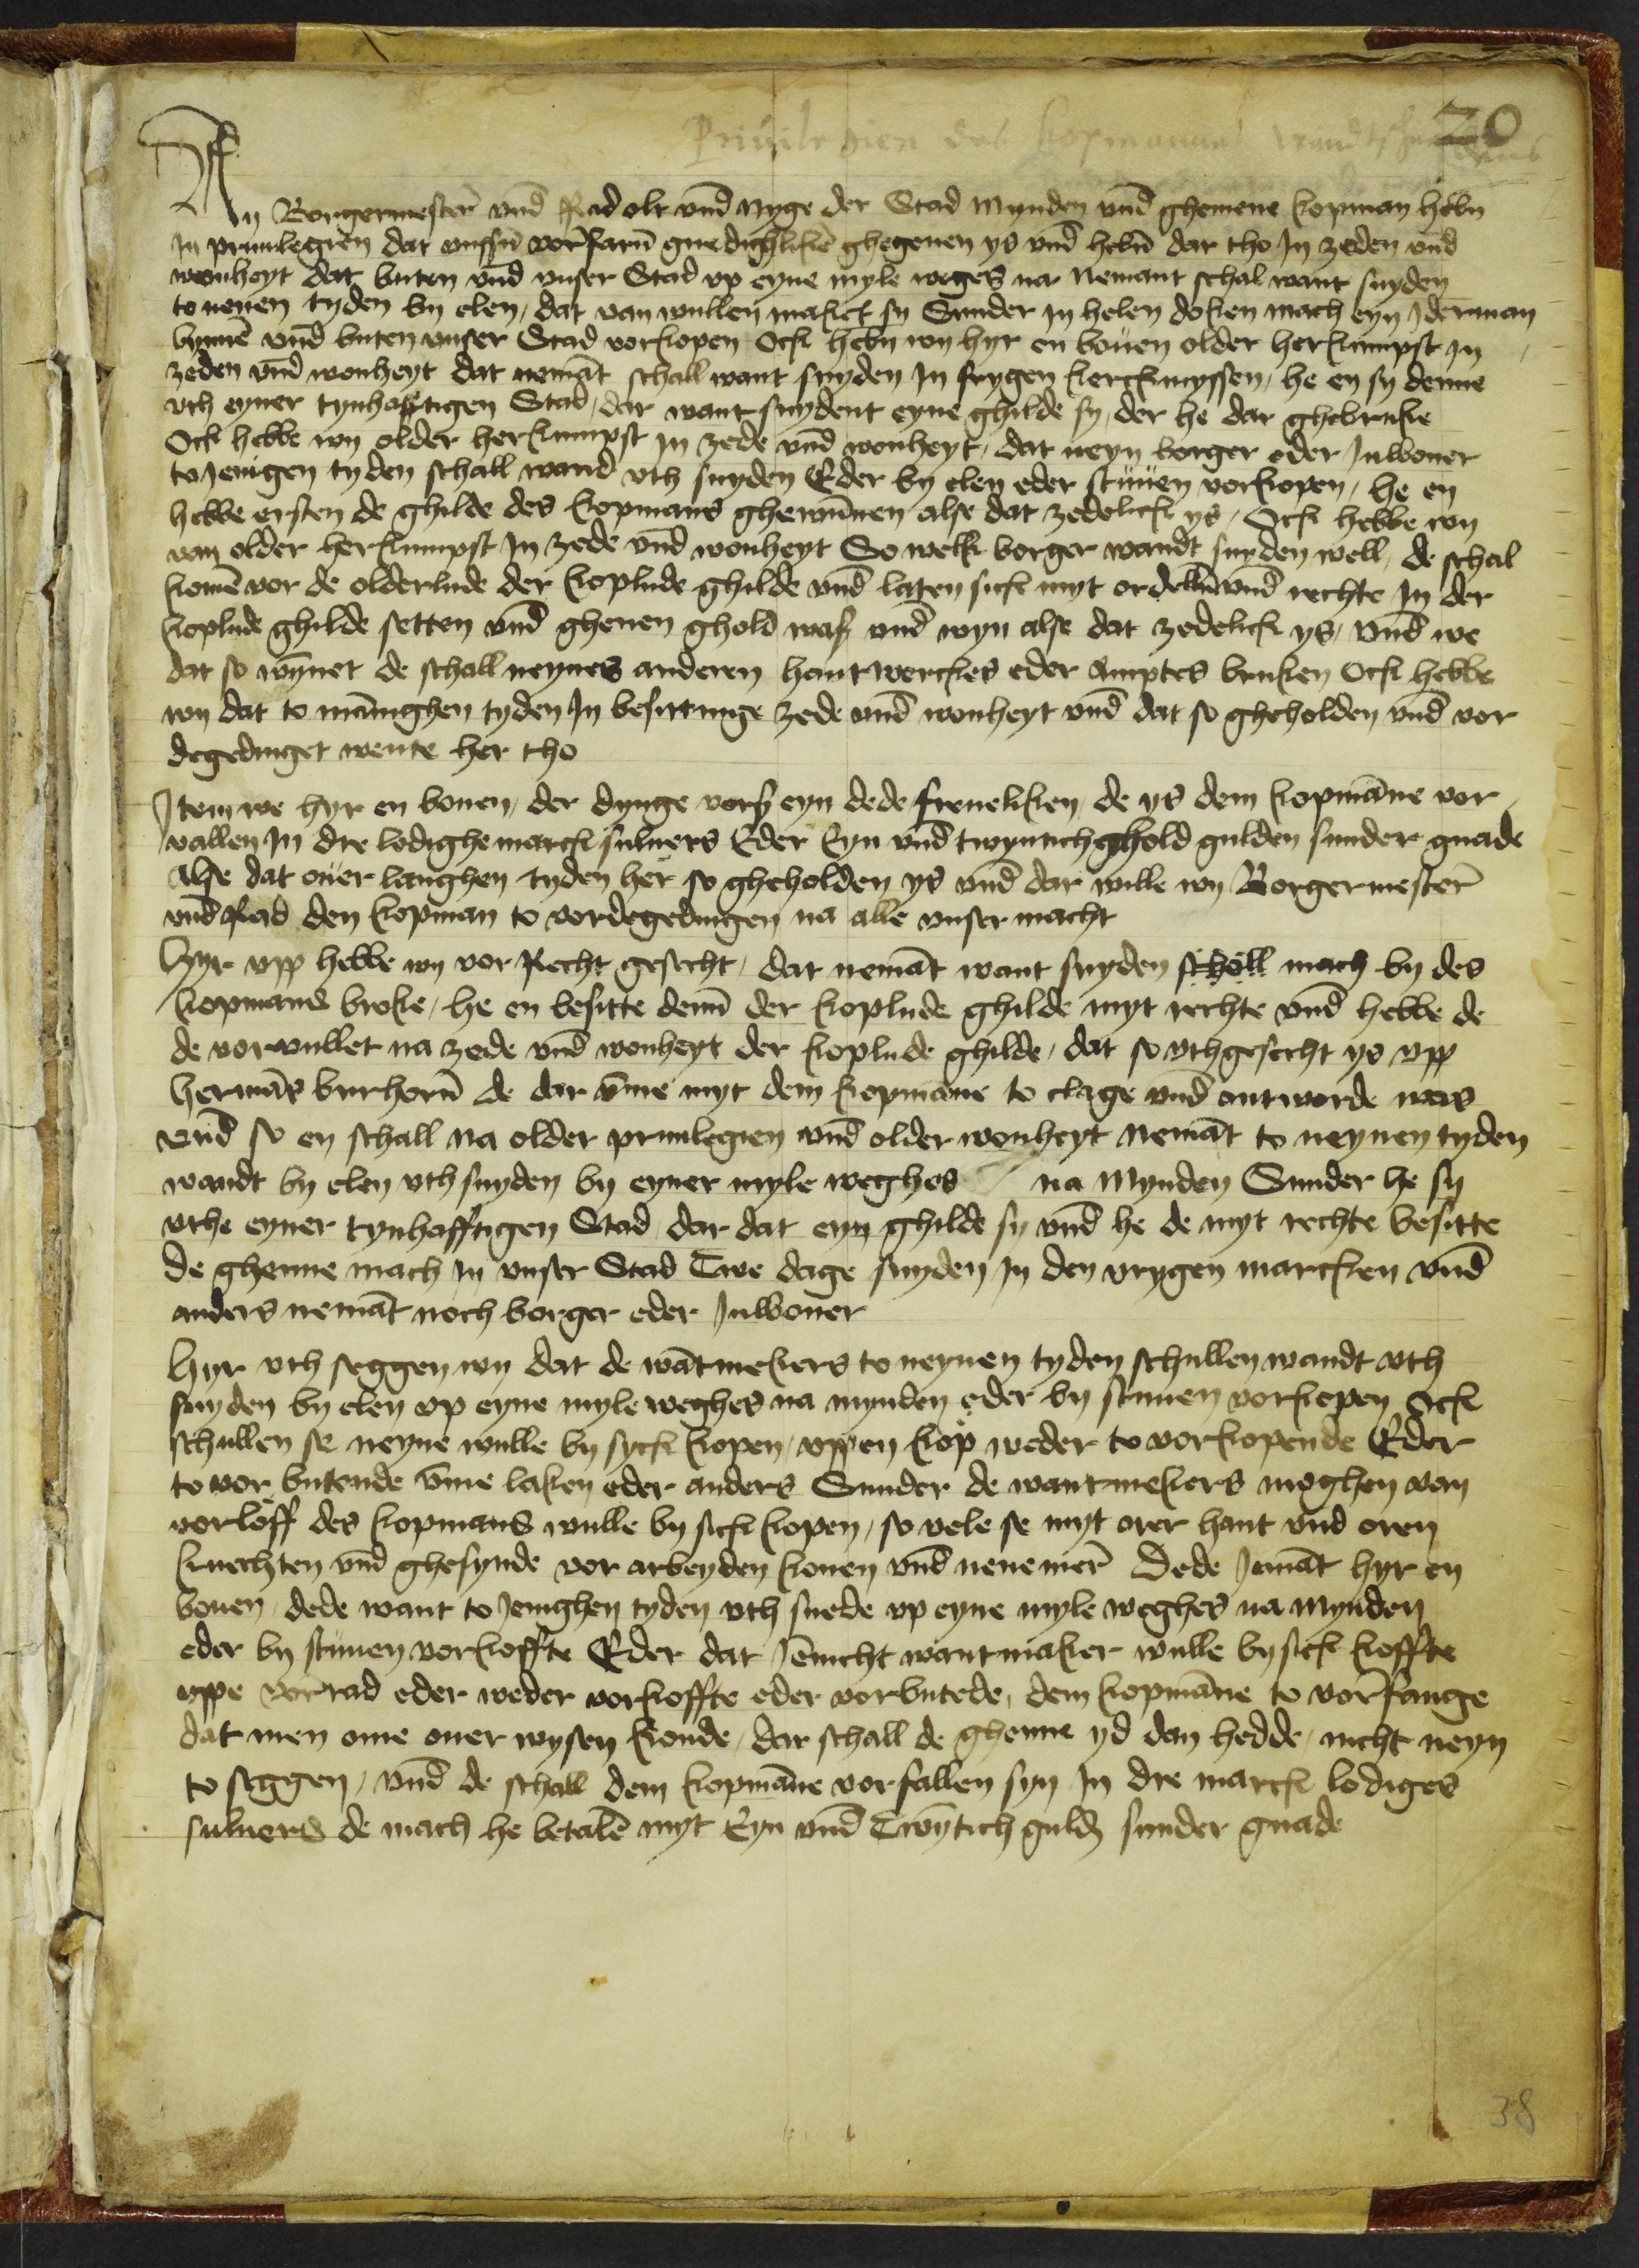 Priuilegien des kopmanns wandtsnydens
20
Wy Borgermester vnd Rad olt vnd nyge der Stad Mynden vnd ghemene kopman hebn
In priuilegien dat vnssn vorfarn gnedichliken ghegeuen ys vnd hebn dar tho In zeden vnd
wonheyt dat buten vnd vnser Stad vp eyne myle weges na Nemant schal want snyden
to nenen tyden by elen, dat van wullen maket sy Sunder in helen doken mach eyn Iderman
bynnen vnd buten vnser Stad vorkopen Ock hebn wy hyr en bouen older herkumpst in
zeden vnd wonheyt dat nemant schall want snyden In frygen kerckmyssen, he en sy denne
vth eyner tynhafftigen Stad, dar want snydent eyne ghilde sy, der he dar ghebruke
Ock hebbe wy older herkumpst in zede vnd wonheyt, dat neyn borger eder Inwoner
to Jenigen tyden schall wand vth snyden Eder by elen eder stuuen vorkopen, he en
hebbe ersten de ghilde des kopmans ghewunnen alse dat zedelick ys, Ock hebbe wy
van older herkumpst In zede vnd wonheyt So welk borger wandt snyden well, de schal
komen vor de olderlude der koplude ghilde vnd laten sick myt ordelen vnd rechte In der
koplude ghilde setten vnd gheuen ghold was vnd wyn alse dat zedelick ys, vnd we
dat so wynnet de schall neynes anderen hantwerckes eder Amptes bruken Ock hebbe
wy dat to mannighen tyden In besittinge zede vnd wonheyt vnd dat so gheholden vnd vor
degedinget wente her tho
Item we hyr en bouen, der dynge vorss eyn dede freueliken, de ys dem kopmanne vor
vallen In dre lodighe marck suluers Eder Eyn vnd twyntich ghold gulden sunder gnade
Alse dat ouer langhen tyden her so gheholden ys vnd dar wille wy Borgermester
vnd Rad den kopman to vordegedingen na alle vnser macht
Hyr vpp hebbe wy vor Recht gesecht, dat nemant want snyden schall mach by des
kopmans broke, he en besitte denn der koplude ghilde myt rechte vnd hebbe de
de vorvullet na zede vnd wonheyt der koplude ghilde, dat so vthgesecht ys vpp
hermans burhorn de dar vmme myt dem kopmanne to clage vnd antworde was
vnd so en schall na older priuilegien vnd older wonheyt Nemant to neynen tyden
wandt by elen vth snyden by eyner myle weghes na Mynden Sunder he sy
vthe eyner tynhafftigen Stad dar dat eyn ghilde sy vnd he de myt rechte besitte
De ghenne mach in vnser Stad Twe dage snyden in den vrygen marckten vnd
anders nemant noch borger eder Inwoner
Hyr vth seggen wy dat de wantmekers to neynen tyden schullen wandt vth
snyden by elen vp eyne myle weghes na mynden eder by stuuen vorkopen Ock
schullen se neyne wulle by syck kopen, vppen kop weder to vorkopende Eder
to vor butende vmme laken eder anders Sunder de wantmekers moghen van
vorloff des kopmans wulle by sick kopen, so vele se myt orer hant vnd oren
knechten vnd ghesynde vor arbeyden konen vnd nene mer Dede Jemant hyr en
bouen, dede want to Jenighen tyden vth snede vp eyne myle weghes na Mynden
eder by stuuen vorkoffte Eder dat Jennicht wantmaker wulle by sick koffte
vppe vorrad eder weder vorkoffte eder vorbutede, dem kopmanne to vorfange
dat men ome ouer wysen konde, dar schall de ghenne yd dan hedde, nicht neyn
to seggen, vnd de schall dem kopmanne vorfallen syn In dre marck lodiges
suluers de mach he betalen myt Eyn vnd Twyntich guld sunder gnade
38